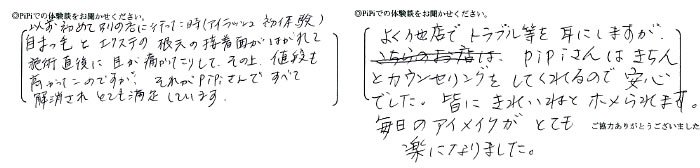 ◎PiPiでの体験談をお聞かせください。
以前初めて別の店に行った時(アイラッシュ初体験)
自まつ毛とエクステの根元の接着面がはがれて
施術直後に目が痛かったりして、その上、値段も
高かったのですが、それがPiPiさんですべて
解消されとても満足しています。
◎PiPiでの体験談をお聞かせください。
よく他店でトラブル等を耳にしますが、
こちらのお店は、PiPiさんはきちん
とカウンセリングをしてくれるので安心
でした。皆にきれいねとホメられます。
毎日のアイメイクがとても
楽になりました。
ご協力ありがとうございました